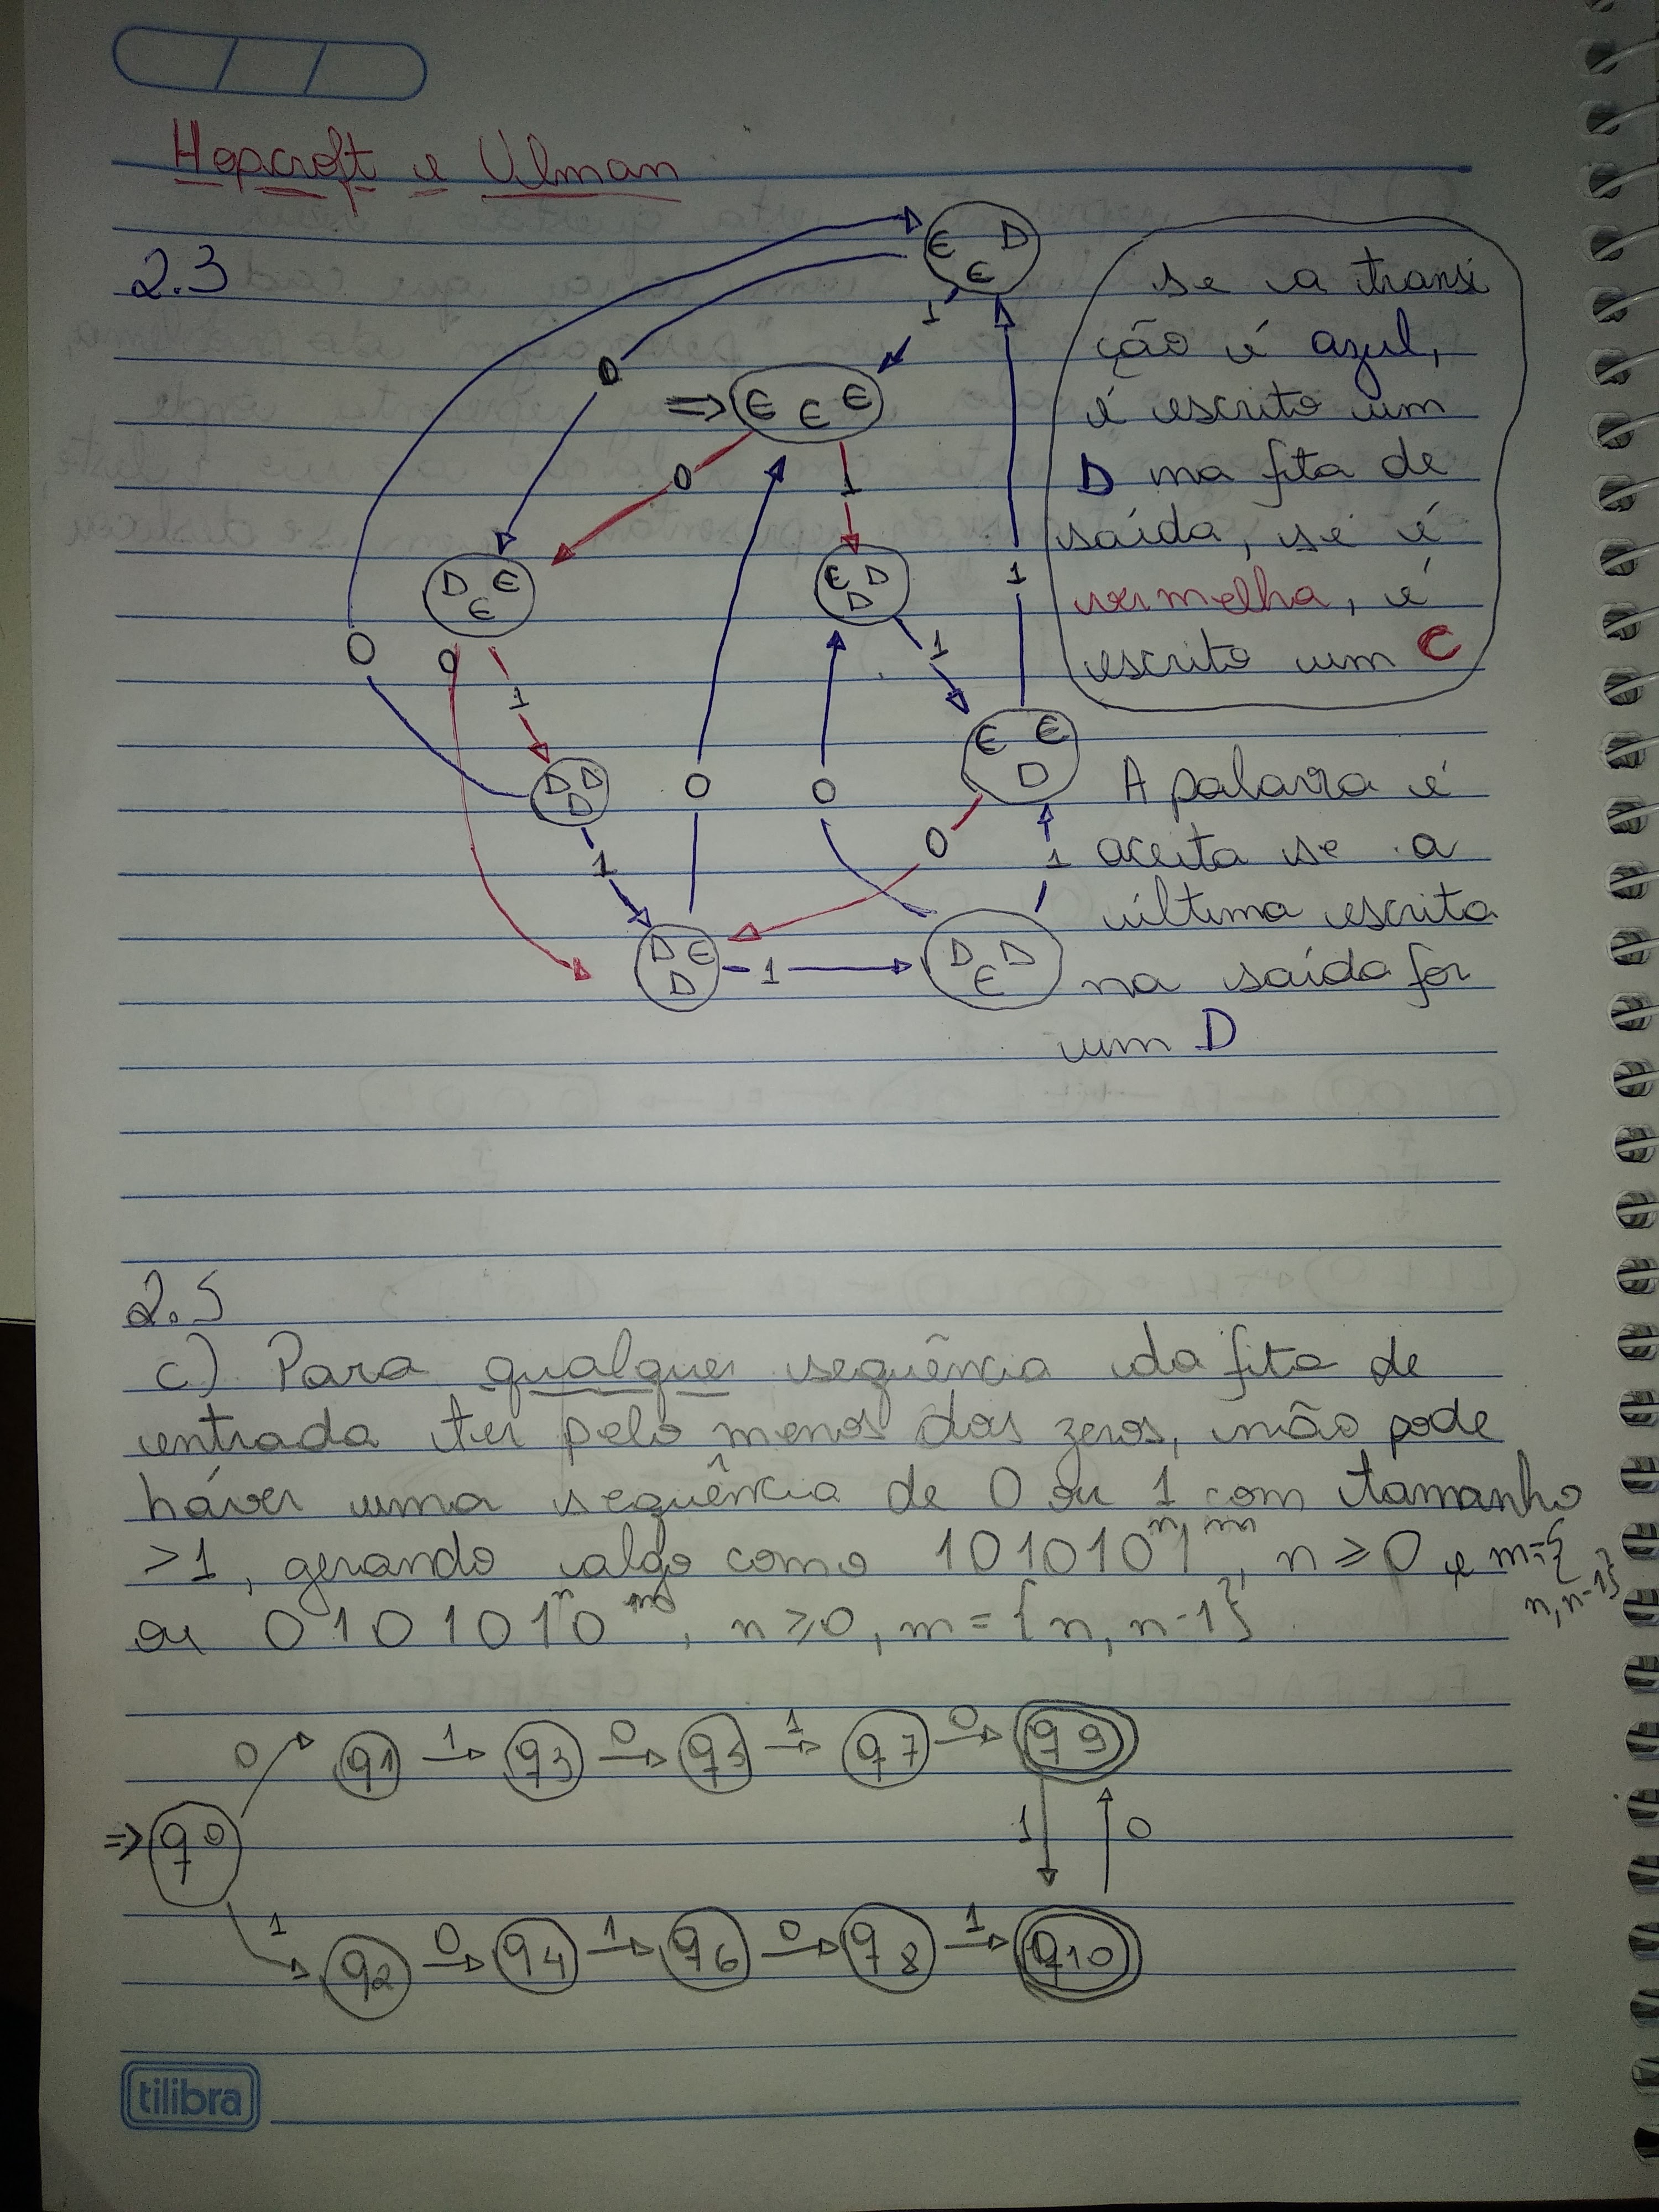 Hopcroft e Ulman
2.3
E D
E
1
0
⇒ E E E
0
1
D E
E
E D
D
1
0
0
1
1
D D
D
0
0
E E
D
1
0
1
D E
D
1
D D
E
se a transi
ção é azul,
é escrito um
D na fita de
saída, se é
vermelha, é
escrito um E
A palavra é
aceita se a
última escrita
na saída for
um D
2.5
c) Para qualquer sequência da fita de
entrada ter pelo menos dos zeros, não pode
háver uma sequência de 0 ou 1 com tamanho
>1, gerando algo como 101010ⁿ1ᵐ, n ≥ 0 e m={
n, n-1}
ou 010101ⁿ0ᵐ, n ≥ 0, m = {n, n-1}
0 q1 1 q3 0 q5 1 q7 0 q9
⇒ q0 1 0
1 q2 0 q4 1 q6 0 q8 1 q10
tilibra